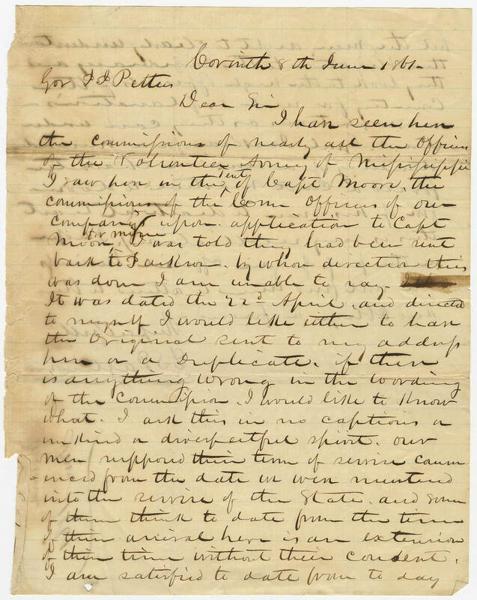 Corinth 8th June 1861
Gov J J Pettus
Dear Sir
I have seen here
the commissions of nearly all the Officers
of the Volunteer Army of Mississippi
I saw here in the tent of Capt Moore, the
commissions of the Com Officers of our
company upon application to Capt
Moore, for mine I was told they had been sent
back to Jackson. by whose direction this
was done I am unable to say.
It was dated the 22d April, and directed
to myself I would like either to have
the Original sent to my address
here or a duplicate. if there
is anything wrong in the wording
of the Commission I would like to know
what. I ask this in no captious or
unkind or disrespectful spirit. our
men supposed their term of service comm
enced from the date we were mustered
into the service of the State. and some
of them think to date from the time
of their arrival here is an extension
of their time without their consent.
I am satisfied to date from to day